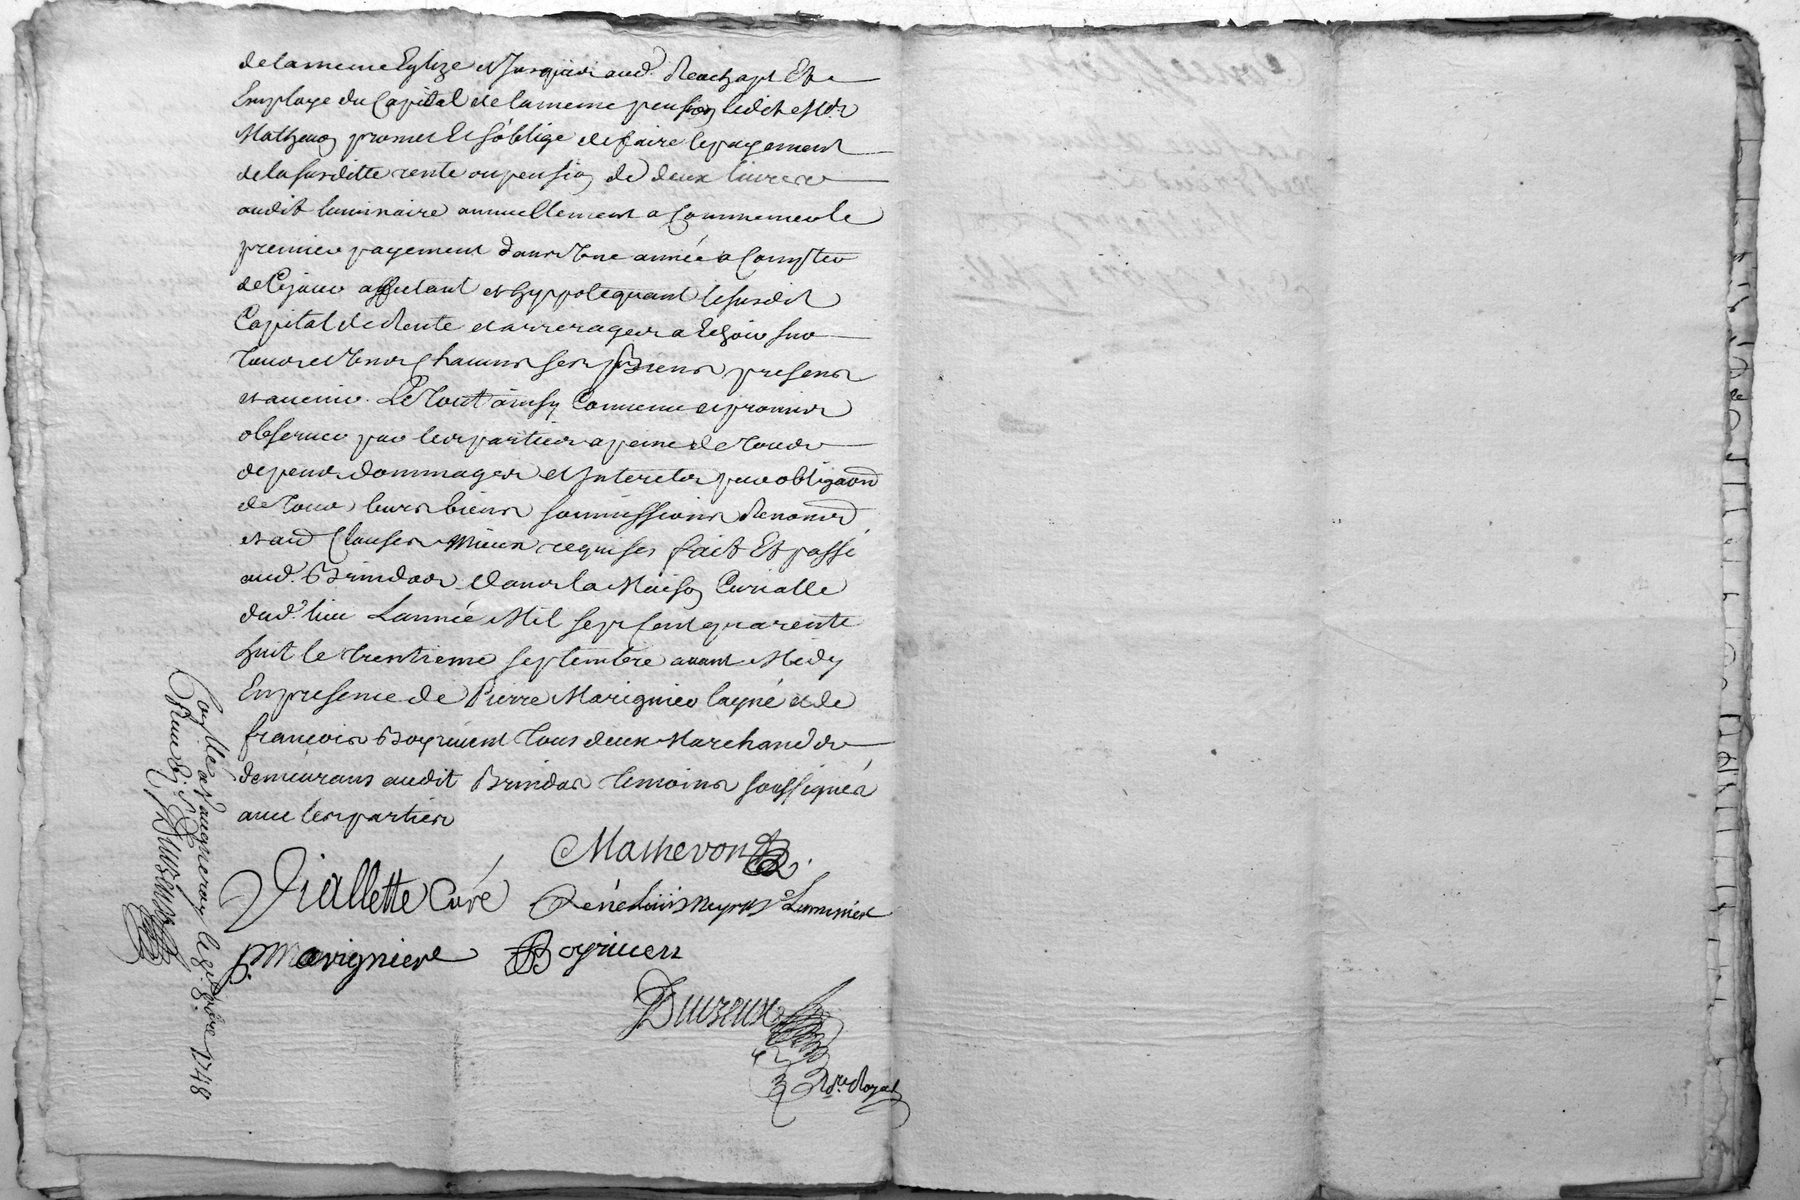 de la meme Eglize et Jusques aud. Reachapt Et
Employe du Capital de la meme pension ledit Mr
Mathevon promet Et s'oblige de faire le payement
de la susditte rente ou pension de deux livres
audit luminaire annuellement a Commencer le
premier payement dans Une année a Compter
de Cejour affectant et hyppotequant le susdit
Capital de Rente et arrerages a Echoir sur
Tous et Uns Chacuns ses Biens presens
et avenir. Le Tout ainsy Convenu et promis
observer par les parties a peine de Tous
depens dommages et Interets par obligaon
de Tous leurs biens soumissions Renoms
et aud Clauses mieux requises fait Et passé
aud. Brindas dans la Maison Curialle
dud. lieu L'année Mil sept Cent quarente
huit le trentieme septembre avant Midy
En presence de Pierre Marignier layné et de
francois Boyrivent Tous deux Marchands
demeurans audit Brindas temoins soussignés
avec les parties
Mathevon
Viallette Curé René Louis Luminier
P. Marigniere Boyriven
Duizeux
Nre Royal
Conlle a Vaugneray le 8bre 1748
Duizeux